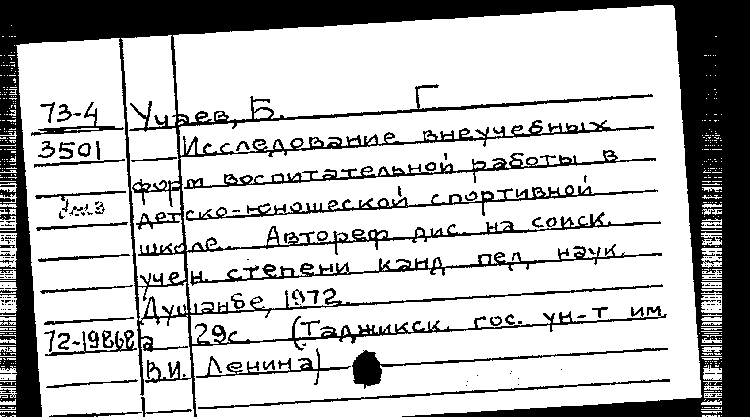 73-4 Учаев, Б. Г
3501 Исследование внеучебных
форм воспитательной работы в
детско-юношеской спортивной
школе. Автореф дис. на соиск.
учен. степени канд пед. наук.
Душанбе, 1972.
72-19868а 29с. (Таджикск. гос. ун-т им.
В.И. Ленина)